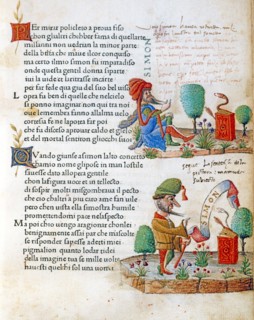 PEr mirar policleto a prova fiso
chon glialtri chebber fama di quellarte
millanni non vedrian la minor parte
della belta che mave ilcor conquiso
ma certo ilmio simon fu imparadiso
onde questa gentil donna si parte
ivi la vide et laritrasse incarte
per far fede qua giu del suo bel viso
Lopera fu ben di quelle che nelcielo
si ponno imaginar non qui tra noi
oue lemembra fanno allalma uelo
cortesia fe ne la potea far poi
che fu disceso aprovar caldo et gielo
et del mortal sentiron gliocchi suoi
QVando giunse asimon lalto concetto
chamio nome glipose in man lostile
sauesse dato allopera gentile
chon lafigura uoce et intellecto
di sospir molti misgombraua ilpecto
che cio chaltri a piu caro ame fan uile
pero chen uista ella simostra humile
promettendomi pace nelaspecto
Ma poi chio uengo aragionar chonlei
benignamente assai par che mascolte
se risponder sapesse adetti miei
pigmalion quanto lodar tidei
della imagine tua se mille uolte
nauesti quelchi sol una uorrei
SIMON